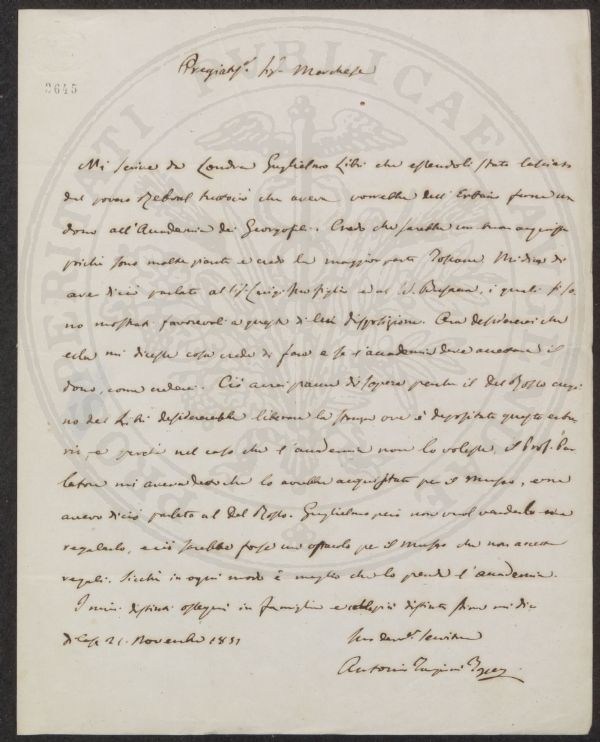 Pregiatis.º Sigr. Marchese
2645
PROSPERITATI PUBLICAE AUGENDAE
Mi scrive da Londra Guglielmo Libri che essendoli stato lasciato
dal povero Reboul tutto ciò che aveva vorrebbe dell'Erbario farne un
dono all'Accademia dei Georgofili. Credo che sarebbe un buon acquisto
poiché sono molte piante e credo la maggior parte Toscane. Mi dice di
avere di ciò parlato al Sig. Luigi e al M. i quali si so
no mostrati favorevoli a questa di Lui disposizione. Ora desidererei che
ella mi dicesse cosa crede di fare e se l'accademia deve accettare il
dono, come crederei. Ciò avrei piacere di sapere perché il Del Rosso cugi
no del Libri desidererebbe liberare la stanza ove è depositato questo erba
rio e perché nel caso che l'accademia non lo volesse, il Prof. Par
latore mi aveva detto che lo avrebbe acquistato per il Museo, come
avevo di ciò parlato al Del Rosso. Guglielmo però non vuol venderlo ma
regalarlo, e ciò sarebbe forse un ostacolo per il Museo che non accetta
regali. Sicché in ogni modo è meglio che lo prenda l'accademia.
I miei distinti ossequi in famiglia e colla più distinta stima mi dico
Di Casa 21. Novembre 1851
Suo dev.º Servitore
Antonio Targioni Tozzetti